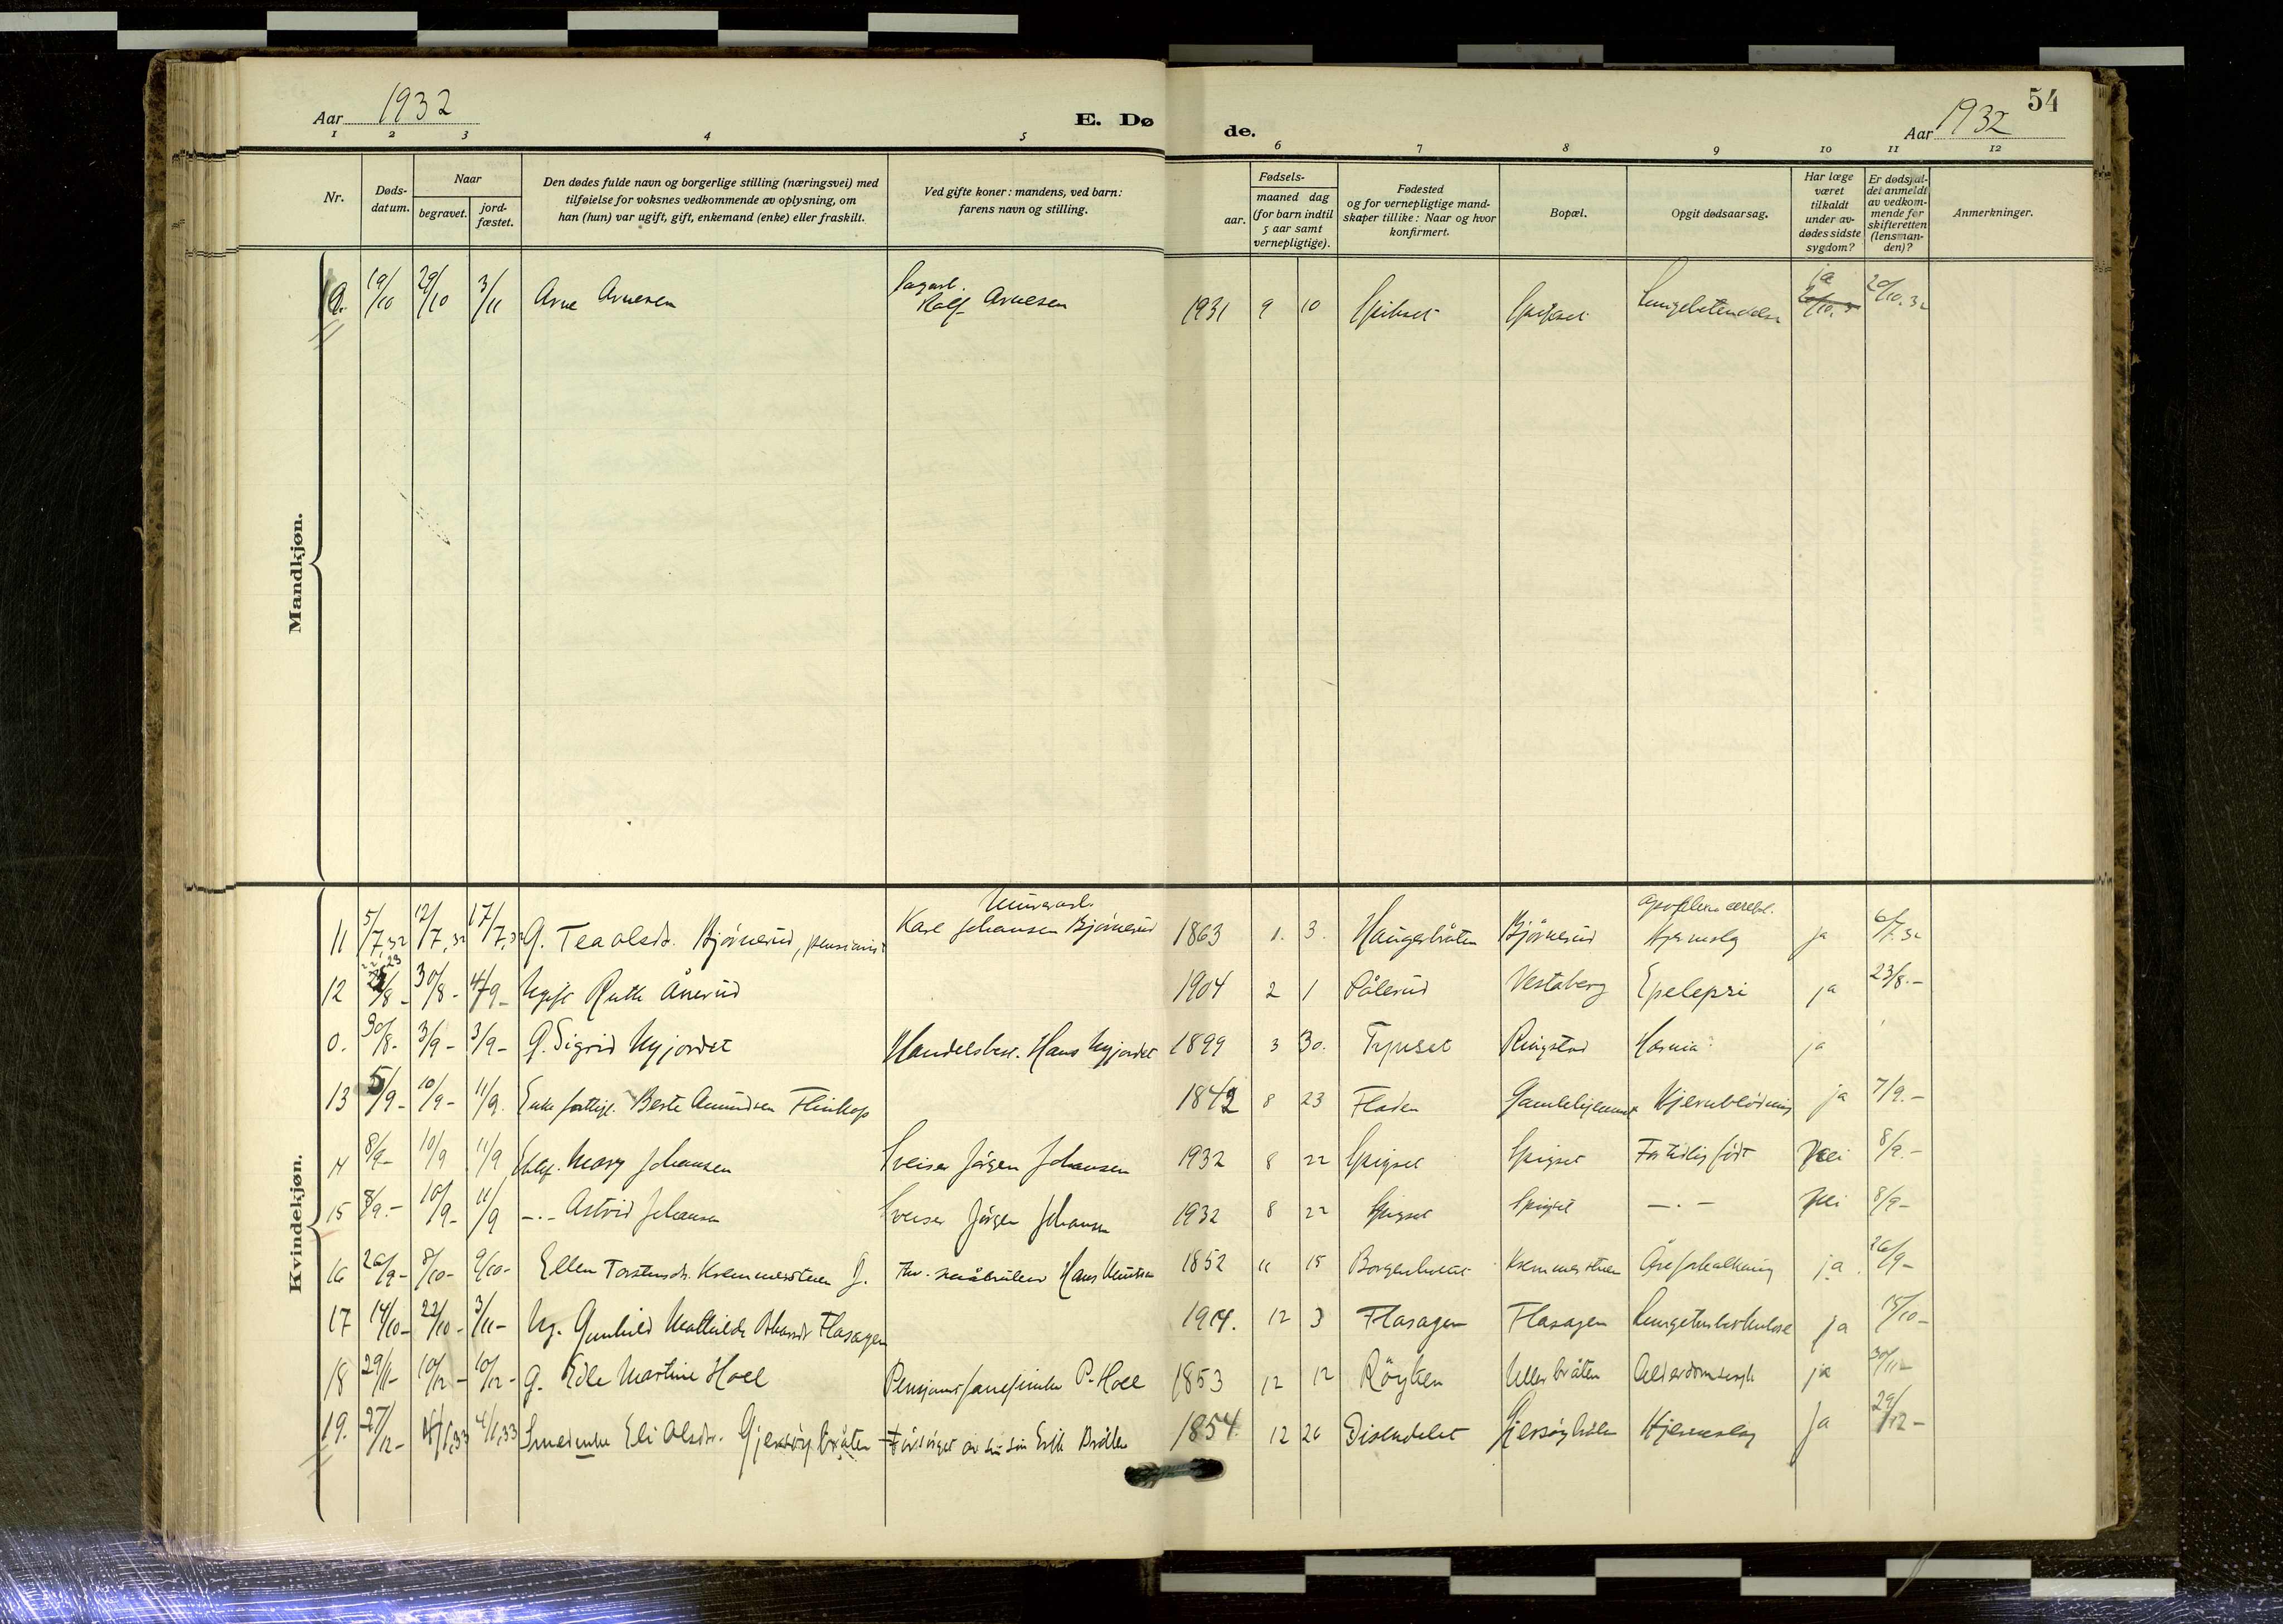 Aar 1932
E. Dø
de.
Aar 1932
54
1 2 3 4 5 6 7 8 9 10 11 12
Nr.
Døds-
datum.
Naar
begravet.
jord-
fæstet.
Den dødes fulde navn og borgerlige stilling (næringsvei) med
tilføielse for voksnes vedkommende av oplysning, om
han (hun) var ugift, gift, enkemand (enke) eller fraskilt.
Ved gifte koner: mandens, ved barn:
farens navn og stilling.
Fødsels-
aar.
maaned dag
(for barn indtil
5 aar samt
vernepligtige).
Fødested
og for vernepligtige mand-
skaper tillike: Naar og hvor
konfirmert.
Bopæl.
Opgit dødsaarsag.
Har læge
været
tilkaldt
under av-
dødes sidste
sygdom?
Er dødsfal-
det anmeldt
av vedkom-
mende for
skifteretten
(lensman-
den)?
Anmerkninger.
Mandkjøn.
19/10 29/10 3/11 Arne Arnesen Rolf Arnesen 1931 9 10 ja 20/10.32
Kvindekjøn.
11 5/7.32 12/7.32 17/7.32 G. Tea Olsdr. Bjørnerud, pensionist Karl Johansen Bjørnerud 1863 1. 3. Haugerbråten Bjørnerud Hjerneslag ja 6/7.32
12 30/8- 4/9- Ugift Ruth Ånerud 1904 2 1 Pålerud Vestaberg Epelepsi ja 23/8.-
0. 30/8- 3/9- 3/9- G. Sigrid Nyjordet Handelsbest. Hans Nyjordet 1899 3 30. Tynset Ringstad ja
13 5/9- 10/9- 11/9. Enke fattigl. Berte Amundsen Flinkop 1842 8 23 Fladen Gamlehjemmet Hjerneblödning ja 7/9.-
14 8/9- 10/9 11/9 Mary Johansen Sveiser Jörgen Johansen 1932 8 22 Spigset Spigset For tidlig født Nei 8/9.-
15 8/9.- 10/9- 11/9 -.- Astrid Johansen Sveiser Jörgen Johansen 1932 8 22 Spigset Spigset -.- Nei 8/9-
16 26/9- 8/10- 9/10- Ellen Torstensdr. Kremmerstuen G. Hans Knutsen 1852 11 15 Kremmerstuen Åreforkalkning ja 26/9-
17 14/10- 22/10- 3/11- Ug. Gunhild Mathilde Flasagen 1914. 12 3 Flasagen Flasagen Lungetuberkulose ja 15/10-
18 29/11- 10/12- 10/12- G. Edle Martine Hoel P. Hoel 1853 12 12 Röyken Ullerbråten ja 30/11-
19. 27/12- 4/1.33 4/1.33 Eli Olsdr. Gjersöybråten Forsörget av sin sön Erik Bråten 1854 12 26 Disendalet Hjerneslag Ja 29/12-